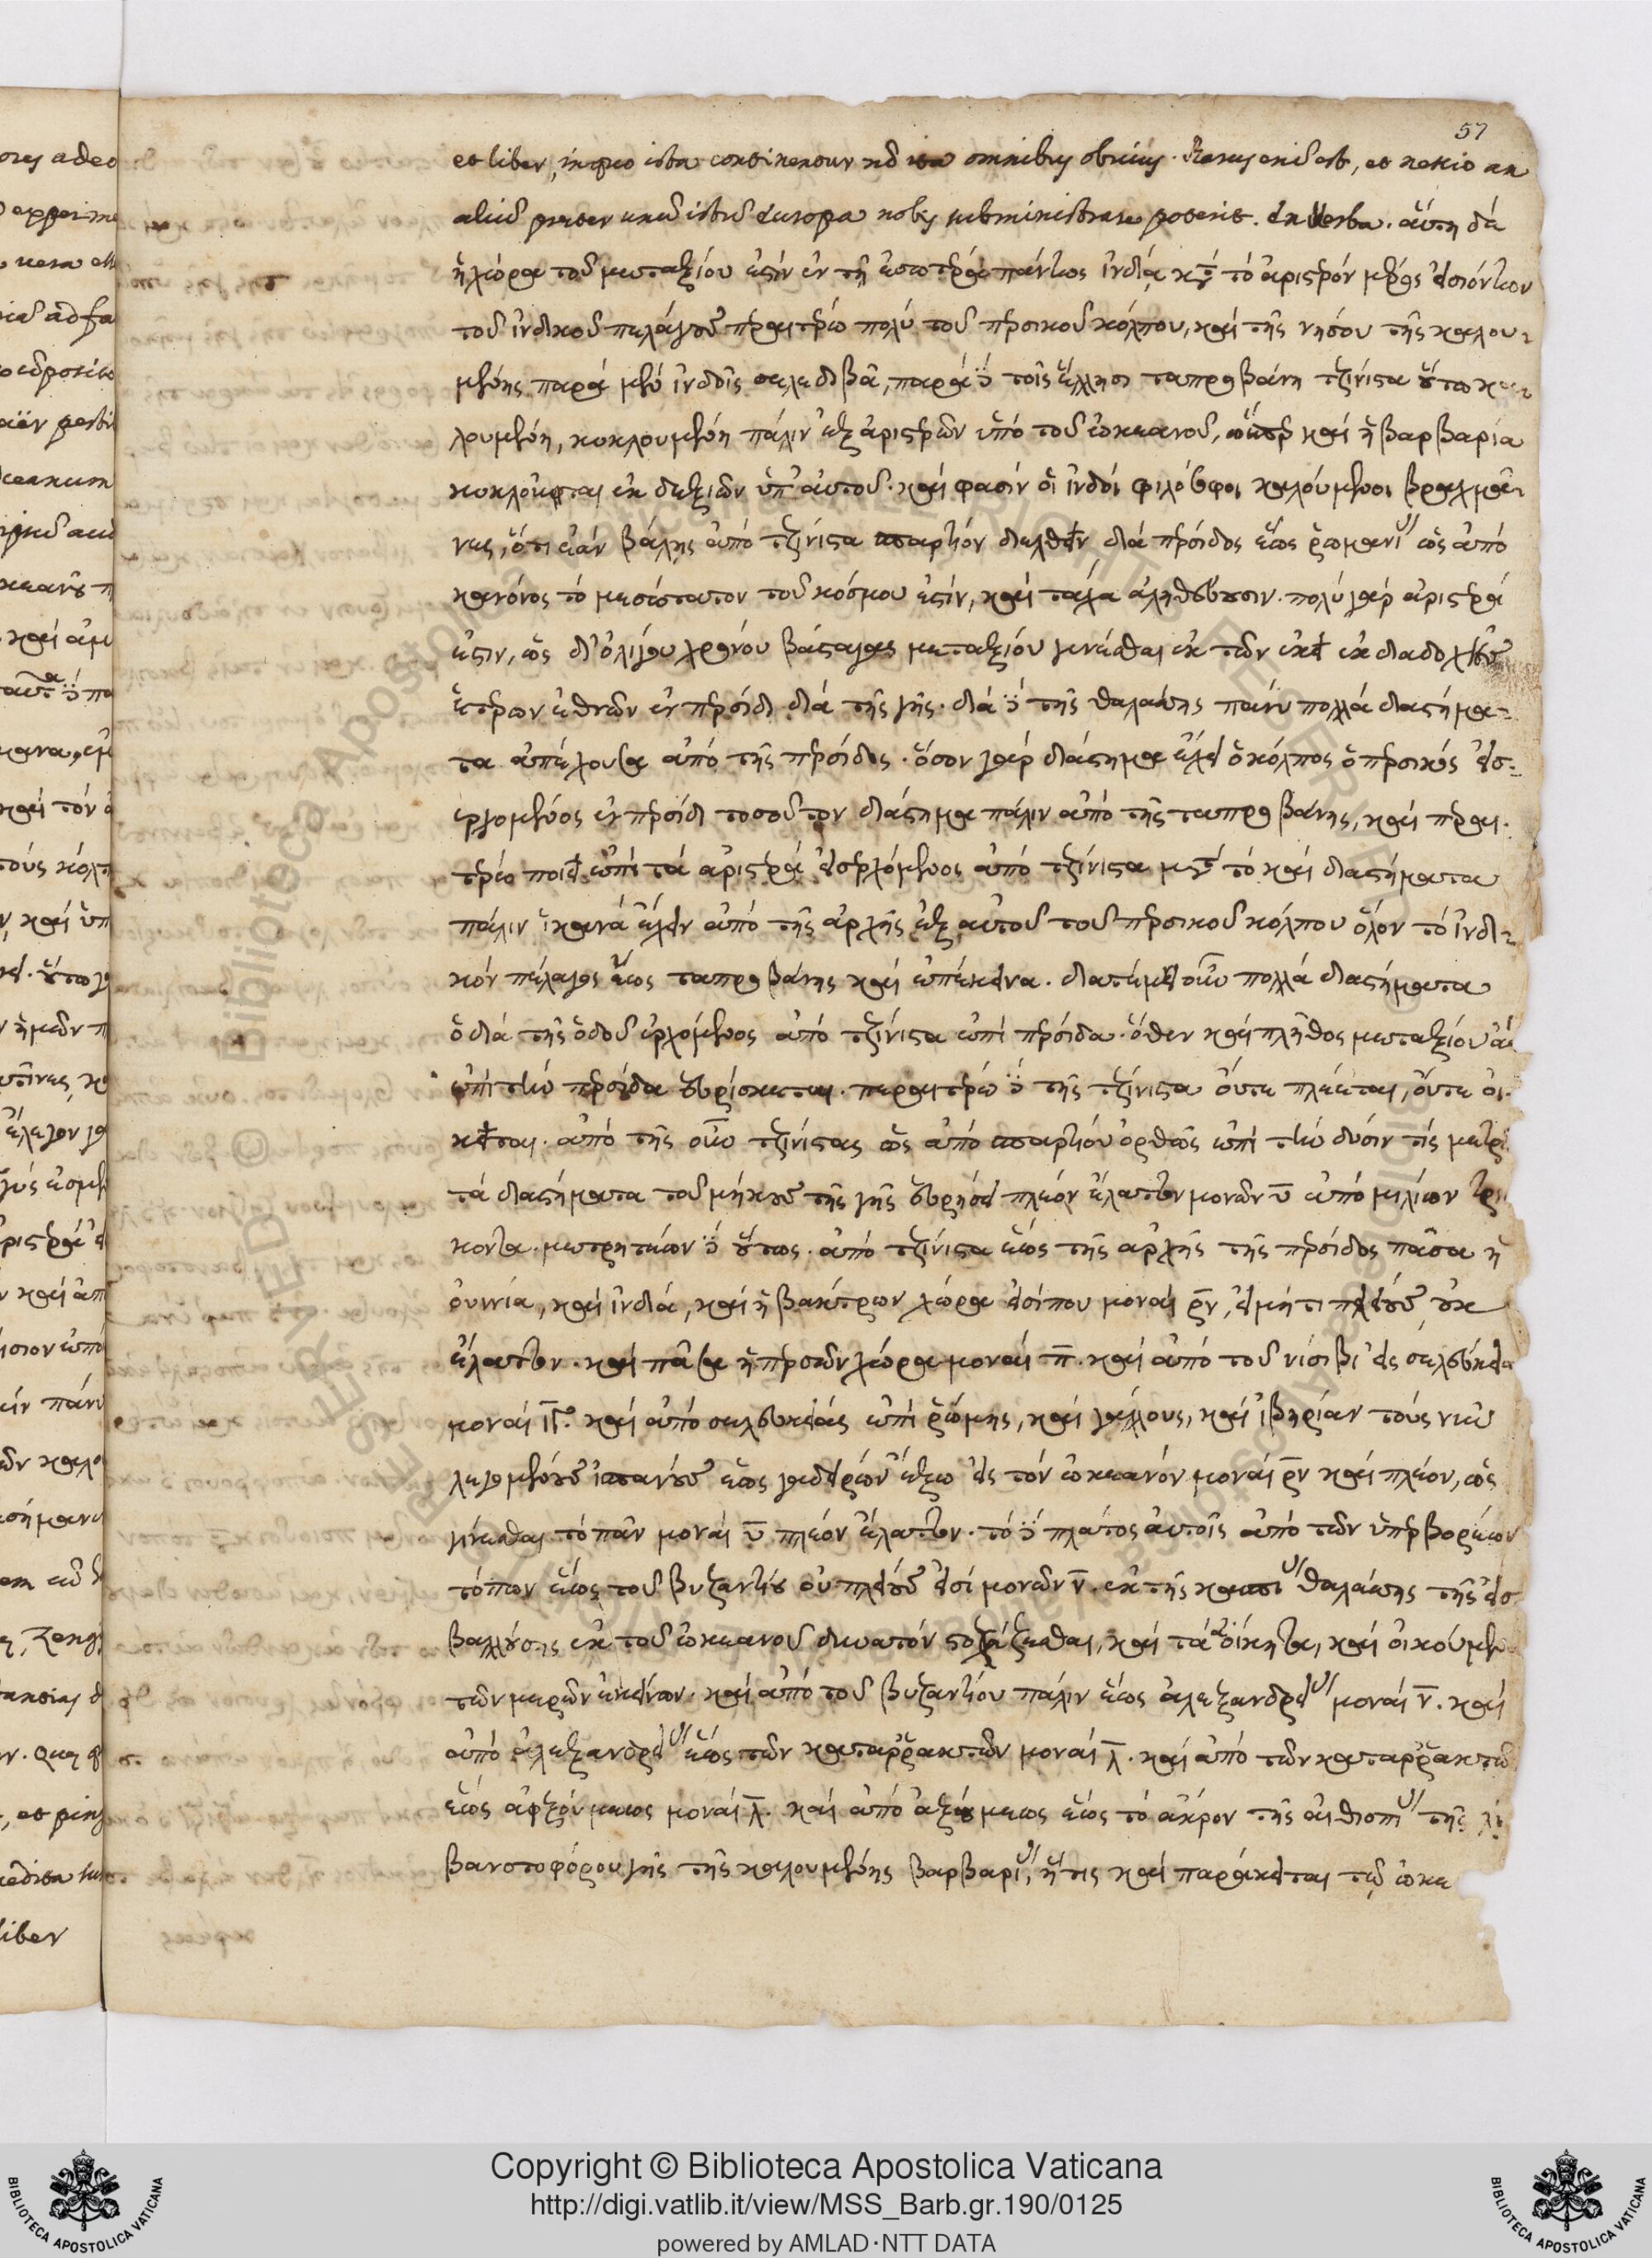 57
et liber, in quo ista continentur nõ ita omnibus obvius. Rarus enim est, et nescio an
aliud praeter unum istud Europa nobis subministrare poterit. En verba. αὕτη δὲ
ἡ χώρα τοῦ μεταξίου ἐστὶν ἐν τῇ ἐσωτέρᾳ πάντως ἰνδίᾳ, κατὰ τὸ ἀριστερὸν μέρος εἰσιόντων
τοῦ ἰνδικοῦ πελάγους περαιτέρω πολὺ τοῦ περσικοῦ κόλπου, καὶ τῆς νήσου τῆς καλου-
μένης παρὰ μὲν ἰνδοῖς σελεδιβᾶ, παρὰ δὲ τοῖς ἕλλησι ταπροβάνη τζίνιστα οὕτω κα-
λουμένη, κυκλουμένη πάλιν ἐξ ἀριστερῶν ὑπὸ τοῦ ὠκεανοῦ, ὥσπερ καὶ ἡ βαρβαρία
κυκλοῦται ἐκ δεξιῶν ὑπ' αὐτοῦ. καὶ φασὶν οἱ ἰνδοὶ φιλόσοφοι καλούμενοι βραχμᾶ-
νες, ὅτι ἐὰν βάλῃς ἀπὸ τζίνιστα σπαρτίον διελθεῖν διὰ περσίδος ἕως ῥωμανίας ὡς ἀπὸ
κανόνος τὸ μεσαίτατον τοῦ κόσμου ἐστὶν, καὶ τάχα ἀληθεύουσιν. πολὺ γὰρ ἀριστερά
ἐστιν, ὡς δι' ὀλίγου χρόνου βασταγὰς μεταξίου γίνεσθαι ἐκ τῶν ἐκεῖ ἐκ διαδοχῆς
ἑτέρων ἐθνῶν ἐν περσίδι διὰ τῆς γῆς. διὰ δὲ τῆς θαλάσσης πάνυ πολλὰ διαστήμα-
τα ἀπέχουσα ἀπὸ τῆς περσίδος. ὅσον γὰρ διάστημα ἔχει ὁ κόλπος ὁ περσικὸς εἰσ-
ερχομένος ἐν περσίδι τοσοῦτον διάστημα πάλιν ἀπὸ τῆς ταπροβάνης, καὶ περαι-
τέρω ποιεῖ ἐπὶ τὰ ἀριστερὰ εἰσερχόμενος ἀπὸ τζίνιστα μετὰ τὸ καὶ διαστήματα
πάλιν ἱκανὰ ἔχειν ἀπὸ τῆς ἀρχῆς ἐξ αὐτοῦ τοῦ περσικοῦ κόλπου ὅλον τὸ ἰνδι-
κὸν πέλαγος ἕως ταπροβάνης καὶ ἐπέκεινα. διατέμνει οὖν πολλὰ διαστήματα
ὁ διὰ τῆς ὁδοῦ ἐρχόμενος ἀπὸ τζίνιστα ἐπὶ περσίδα. ὅθεν καὶ πλῆθος μεταξίου ἀεὶ
ἐπὶ τὴν περσίδα εὑρίσκεται. περαιτέρω δὲ τῆς τζίνιστα οὔτε πλέεται, οὔτε οἰ-
κεῖται. ἀπὸ τῆς οὖν τζίνιστας ὡς ἀπὸ σπαρτίου ὀρθῶς ἐπὶ τὴν δύσιν τίς μετρῶν
τὰ διαστήματα τοῦ μήκους τῆς γῆς εὑρήσει πλέον ἔλαττον μονῶν υ ἀπὸ μιλίων τριά
κοντα. μετρητέον δὲ οὕτως. ἀπὸ τζίνιστα ἕως τῆς ἀρχῆς τῆς περσίδος πᾶσα ἡ
οὐννία, καὶ ἰνδία, καὶ ἡ βάκτρων χώρα εἰσί που μοναὶ ρν, εἰ μή τι πλείους, οὐκ
ἔλαττον. καὶ πᾶσα ἡ περσῶν χώρα μοναὶ π. καὶ ἀπὸ τοῦ νίσιβι εἰς σελεύκεια
μοναὶ ιγ. καὶ ἀπὸ σελευκείας ἐπὶ ῥώμης, καὶ γάλλους, καὶ ἰβηρίαν τοὺς νῦν
λεγομένους ἱσπάνους ἕως γαδείρων ἔξω εἰς τὸν ὠκεανὸν μοναὶ ρν καὶ πλέον, ὡς
γίνεσθαι τὸ πᾶν μοναὶ υ πλέον ἔλαττον. τὸ δὲ πλάτος αὐτοῖς ἀπὸ τῶν ὑπερβορείων
τόπων ἕως τοῦ βυζαντίου οὐ πλείους εἰσὶ μονῶν ν. ἐκ τῆς κασπίας θαλάσσης τῆς εἰσ-
βαλλούσης ἐκ τοῦ ὠκεανοῦ δυνατὸν στοχάζεσθαι, καὶ τὰ ἀοίκητα, καὶ οἰκούμενα
τῶν μερῶν ἐκείνων. καὶ ἀπὸ τοῦ βυζαντίου πάλιν ἕως ἀλεξανδρείας μοναὶ ν. καὶ
ἀπὸ ἀλεξανδρείας ἕως τῶν καταρρακτῶν μοναὶ λ. καὶ ἀπὸ τῶν καταρρακτῶν
ἕως ἀφξόύμεως μοναὶ λ. καὶ ἀπὸ ἀξώμεως ἕως τὸ ἄκρον τῆς αἰθιοπίας τῆς λι
βανοτοφόρου γῆς τῆς καλουμένης βαρβαρίας, ἥτις καὶ παράκειται τῷ ὠκε
Copyright © Biblioteca Apostolica Vaticana
http://digi.vatlib.it/view/MSS_Barb.gr.190/0125
powered by AMLAD·NTT DATA